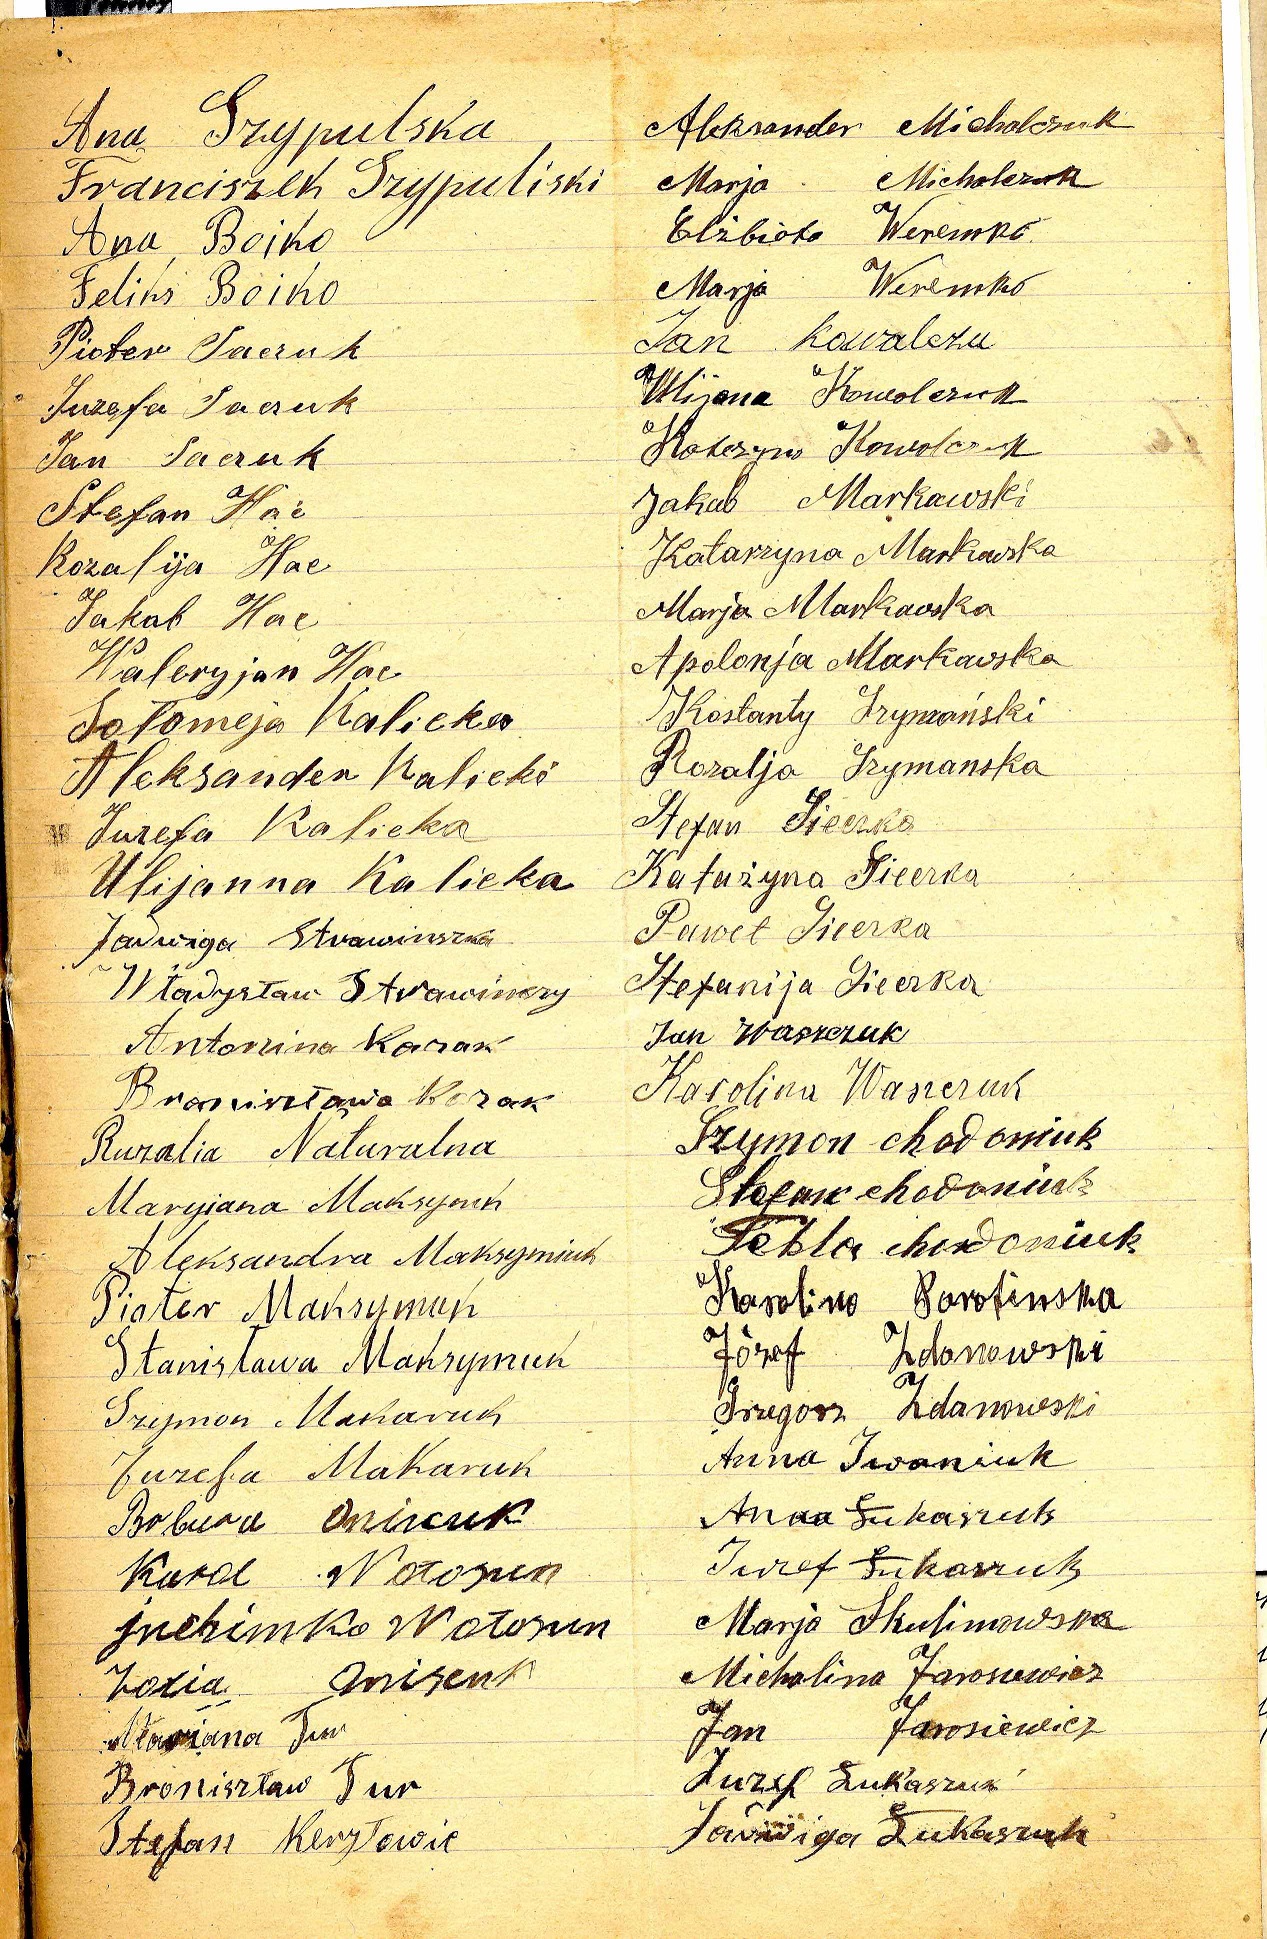 Ana Szypulska
Franciszek Szypuliski
Ana Boiko
Feliks Boiko
Pioter Saczuk
Juzefa Saczuk
Jan Saczuk
Stefan Hac
Rozalija Hac
Jakub Hac
Waleryjan Hac
Sołomeja Kalicka
Aleksander Kalicki
Juzefa Kalicka
Ulijanna Kalicka
Jadwiga Strawinszka
Władysław
Antonina Kazak
Bronisztawa Kozak
Ruzalia Naturalna
Maryjana Maksymuk
Aleksandra Maksymiuk
Pioter Maksymuk
Stanisława Maksymuk
Szymon Makaruk
Juzefa Makaruk
Karol
Zoxia
Marjana Tur
Broniszław Tur
Stefan
Aleksander Michalczuk
Marja Michalczuk
Elżbieta Weremko
Marja Weremko
Jan Kowalczu
Ulijana Kowalczuk
Katczyna Kowalczuk
Jakub Markawski
Katarzyna Markawska
Marja Markawska
Apolonja Markawska
Kostanty Szymański
Rozalja Szymanska
Stefan Sieczka
Katażyna Sieczka
Paweł Sieczka
Stefanija Sieczka
Jan Waszczuk
Karolina Waszczuk
Szymon chodoniuk
Stefan chodoniuk
Tekla chodoniuk
Karolina
Józef Zdanowski
Grzegorz Zdanowski
Anna Iwaniuk
Anna Łukaszuk
Juzef Łukaszuk
Marja Skulimowska
Michalina Jarosiewicz
Jan Jarosiewicz
Juzef Łukaszuk
Jadwiga Łukaszuk